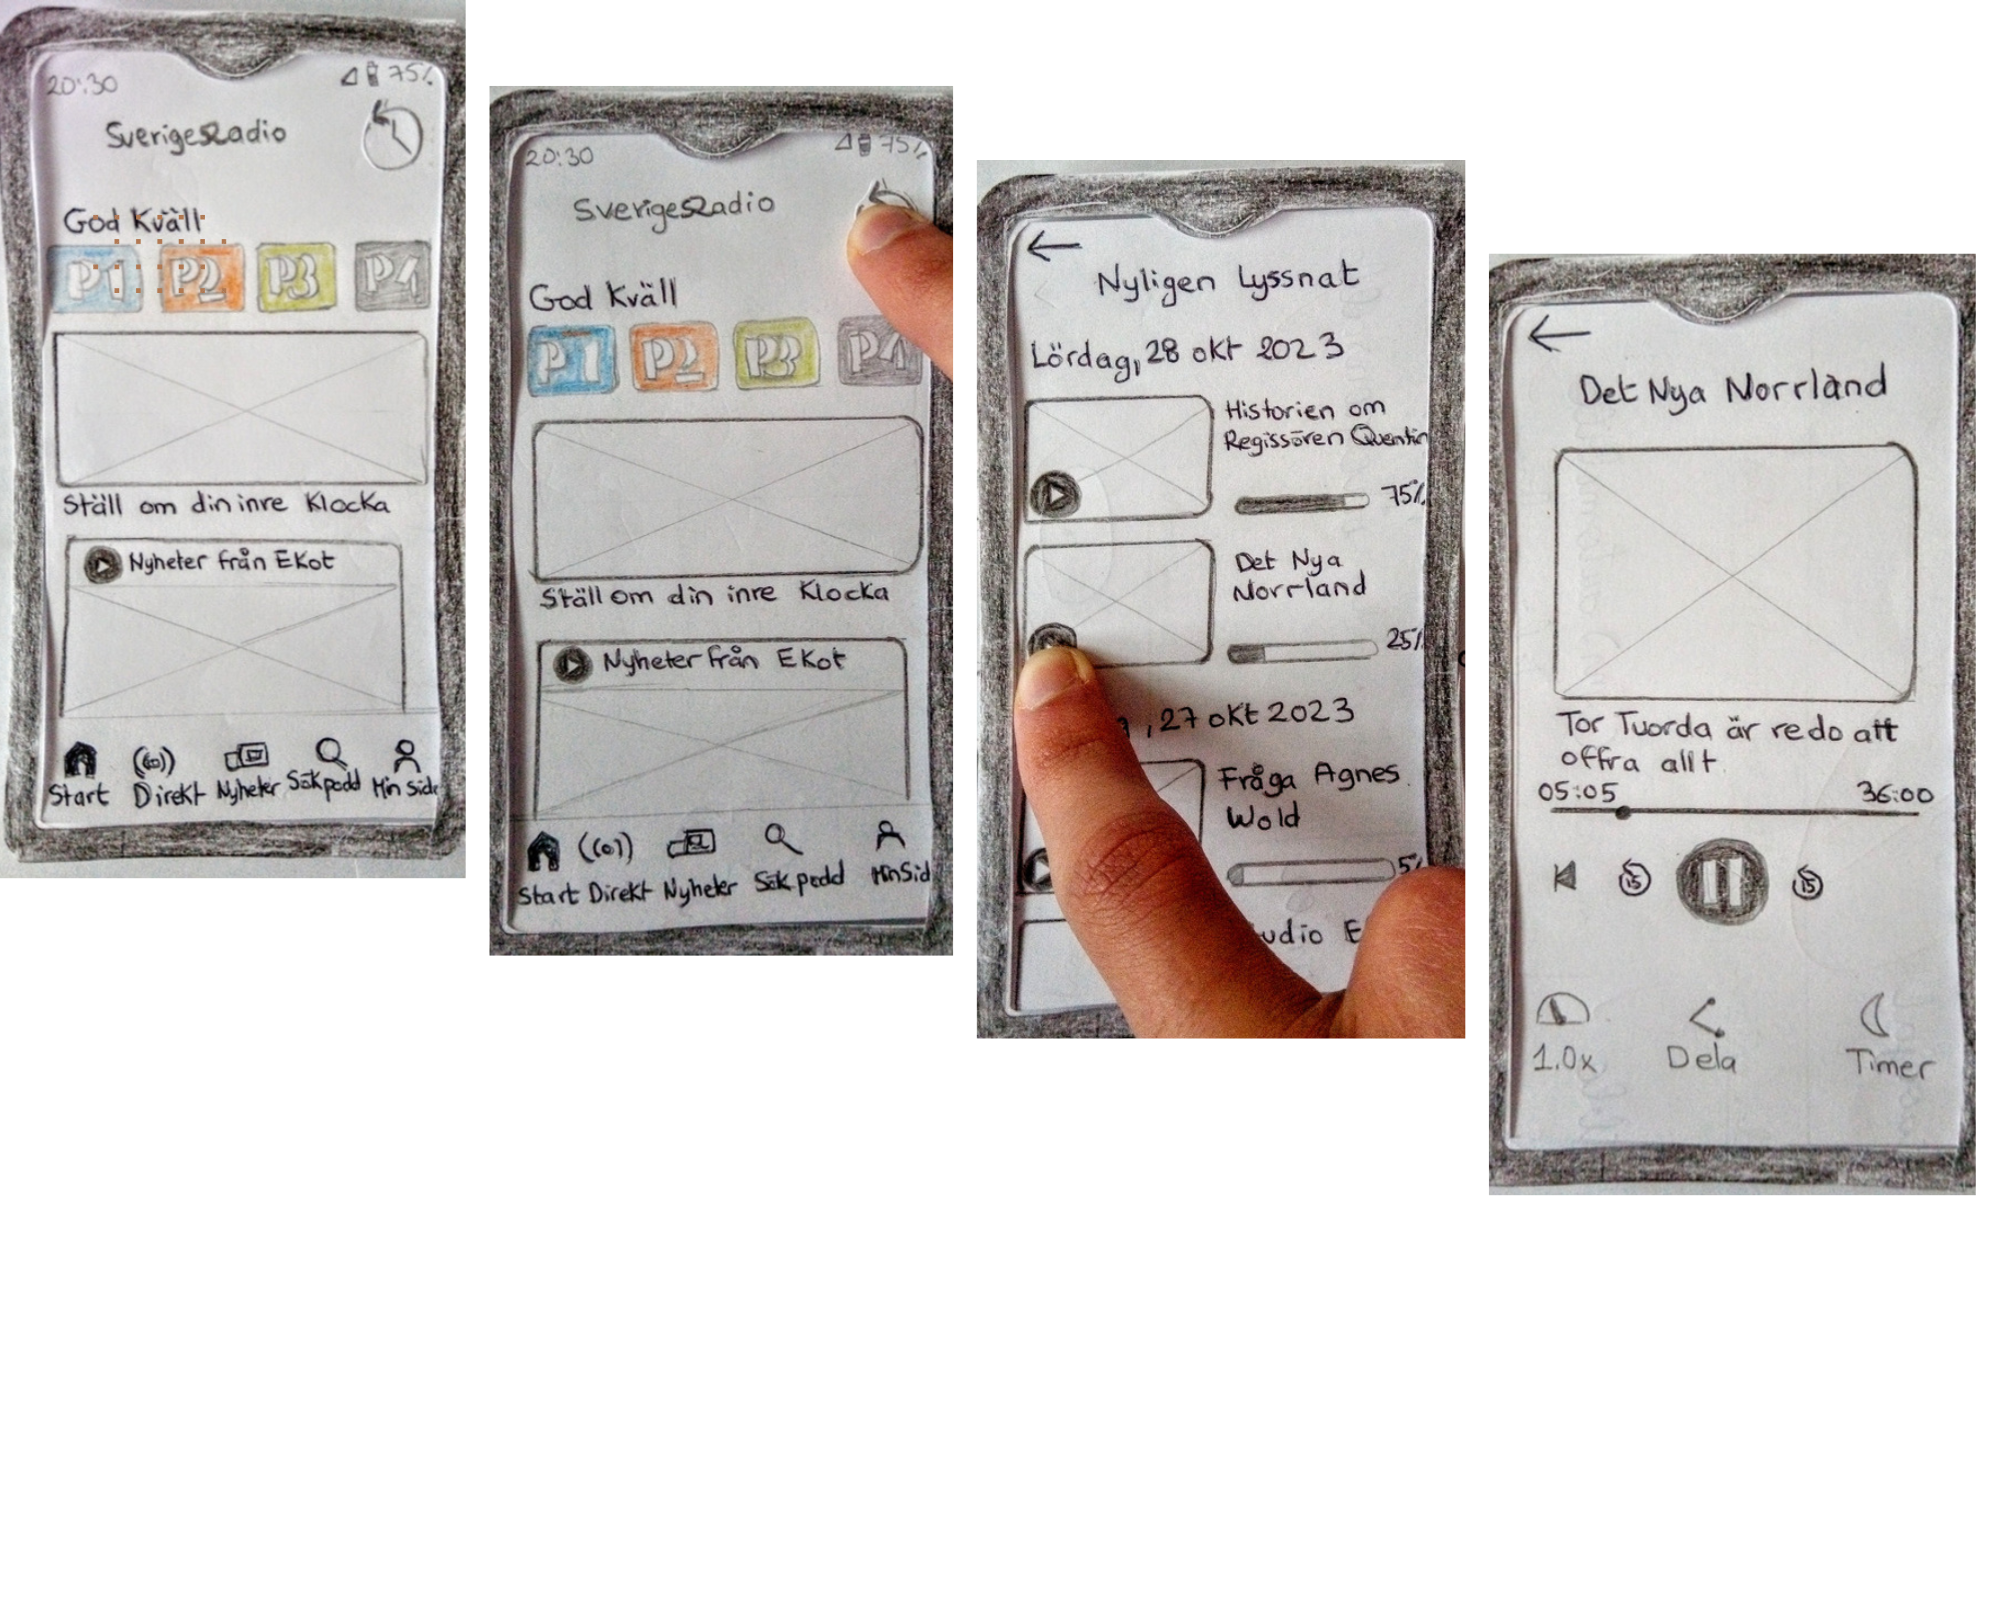 20:30
75%
SverigesRadio
God Kväll
P1 P2 P3 P4
Ställ om din inre Klocka
Nyheter från Ekot
Start Direkt Nyheter Sök podd Min Sida
20:30
75%
SverigesRadio
God Kväll
P1 P2 P3 P4
Ställ om din inre Klocka
Nyheter från Ekot
Start Direkt Nyheter Sök podd Min Sid
Nyligen Lyssnat
Lördag, 28 okt 2023
Historien om
Regissören Quentin
75%
Det Nya
Norrland
25%
, 27 okt 2023
Fråga Agnes
Wold
5%
udio E
Det Nya Norrland
Tor Tuorda är redo att
offra allt
05:05 36:00
15 15
1.0x Dela Timer